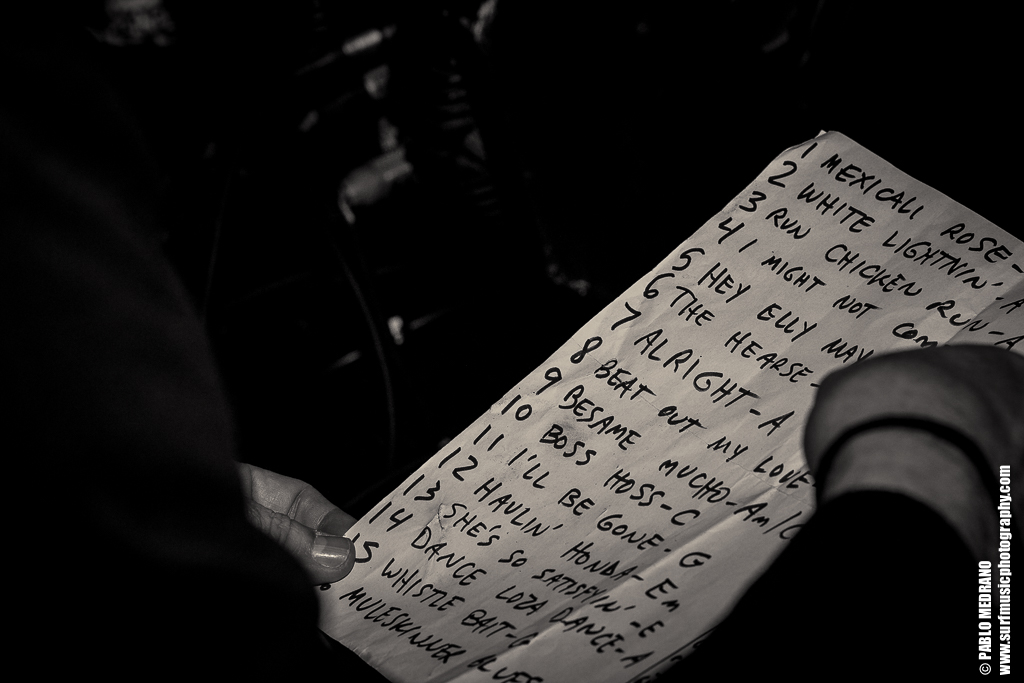 1 MEXICALI ROSE-
2 WHITE LIGHTNIN'-A
3 RUN CHICKEN RUN-A
4 I MIGHT NOT COM
5 HEY ELLY MAY
6 THE HEARSE-
7 ALRIGHT-A
8 BEAT OUT MY LOVE
9 BESAME MUCHO-Am/C
10 BOSS HOSS-C
11 I'LL BE GONE-G
12 HAULIN' HONDA-Em
13 SHE'S SO SATISFYIN'-E
14 DANCE LOZA DANCE-A
15 WHISTLE BAIT-G
MULESKINNER BLUES
© PABLO MEDRANO
www.surfmusicphotography.com